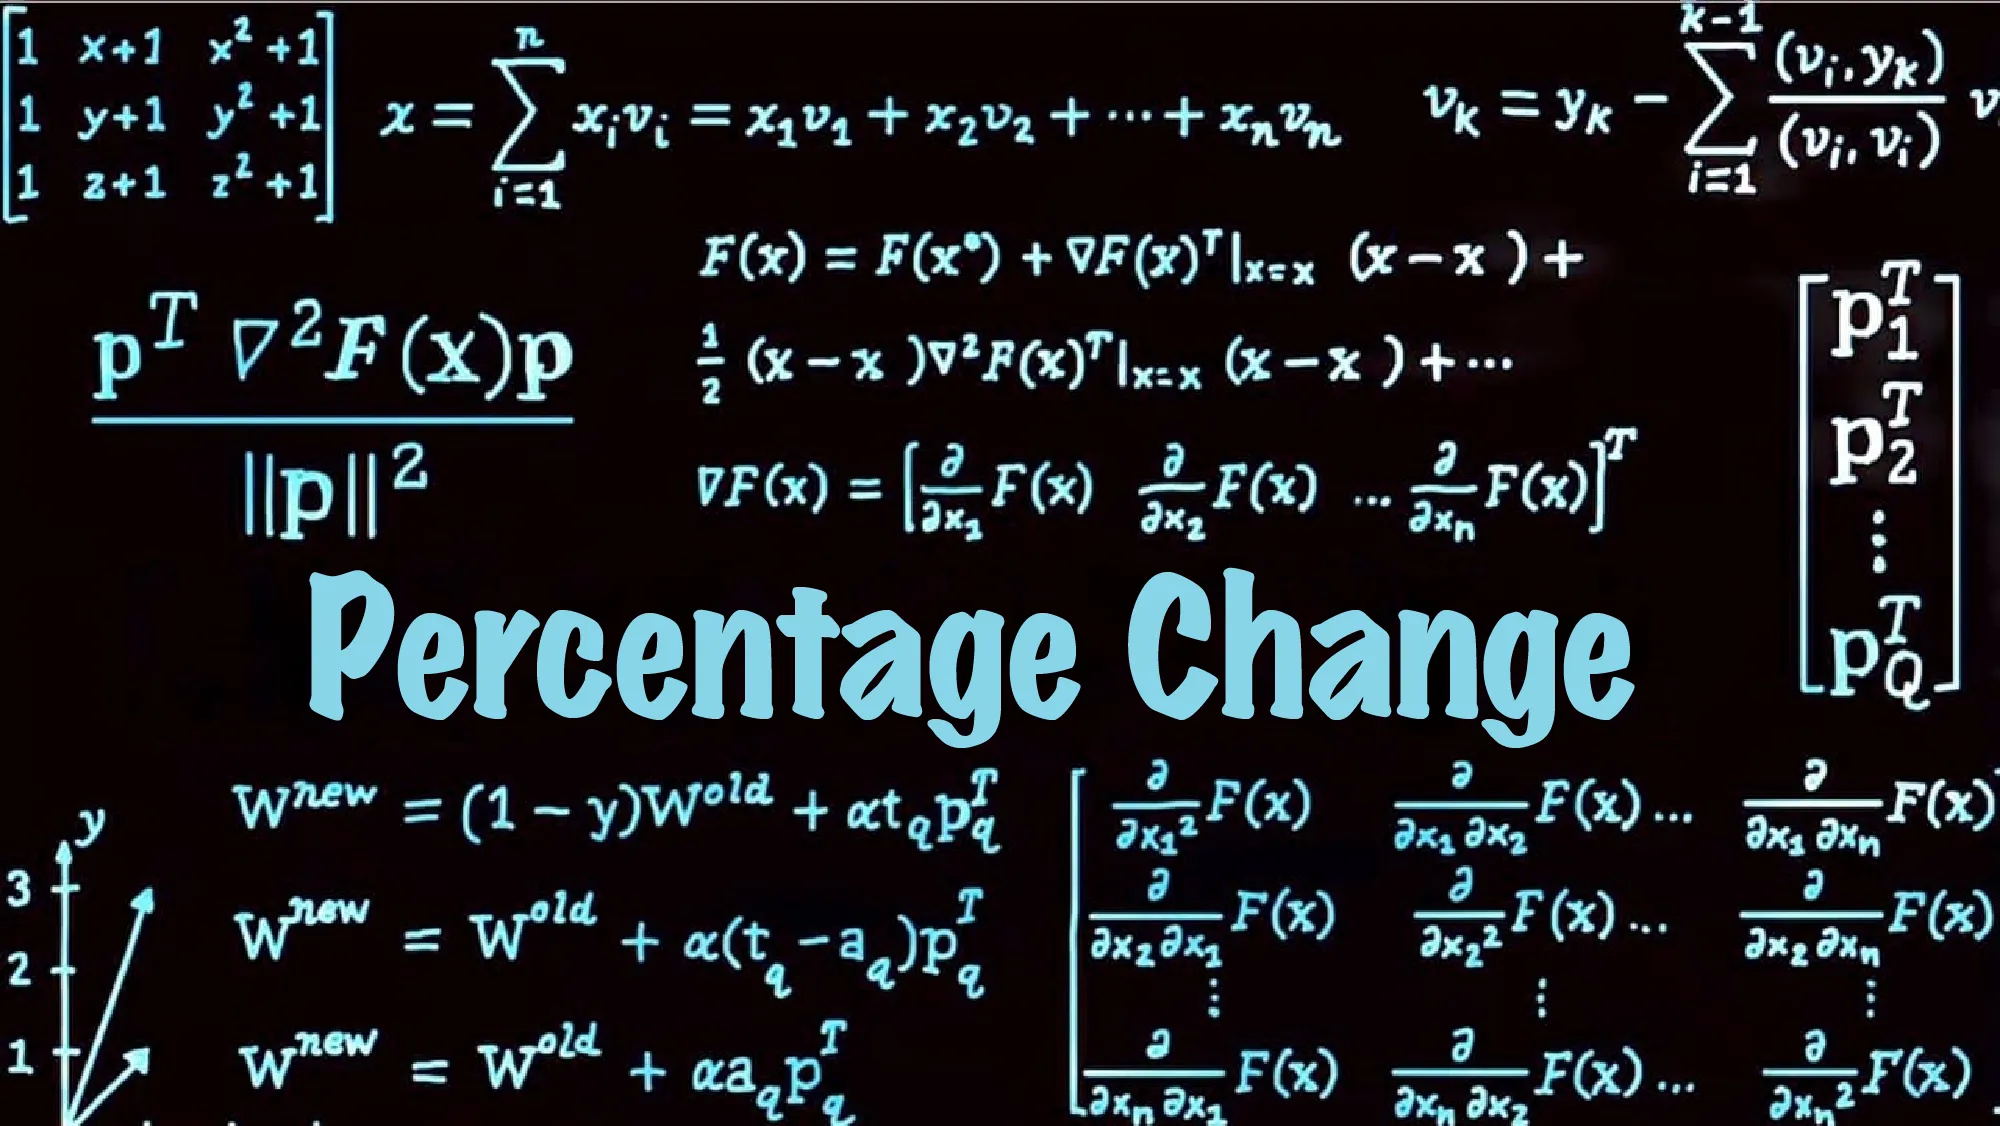 [1 x+1 x²+1]
[1 y+1 y²+1]
[1 z+1 z²+1]
x = ∑ᵢ₌₁ⁿ xᵢvᵢ = x₁v₁ + x₂v₂ + ⋯ + xₙvₙ
vₖ = yₖ − ∑ᵢ₌₁ᵏ⁻¹ (vᵢ, yₖ)/(vᵢ, vᵢ) v
F(x) = F(x•) + ∇F(x)ᵀ|ₓ₌ₓ (x − x ) +
½ (x − x )∇²F(x)ᵀ|ₓ₌ₓ (x − x ) + ⋯
pᵀ ∇²F(x)p
||p||²
∇F(x) = [∂/∂x₁ F(x) ∂/∂x₂ F(x) … ∂/∂xₙ F(x)]ᵀ
p₁ᵀ
p₂ᵀ
⋮
p_Qᵀ
Percentage Change
Wⁿᵉʷ = (1 − y)Wᵒˡᵈ + αt_q p_qᵀ
Wⁿᵉʷ = Wᵒˡᵈ + α(t_q − a_q)p_qᵀ
Wⁿᵉʷ = Wᵒˡᵈ + αa_q p_qᵀ
y
3
2
1
∂/∂x₁² F(x) ∂/∂x₁ ∂x₂ F(x) … ∂/∂x₁ ∂xₙ F(x)
∂/∂x₂ ∂x₁ F(x) ∂/∂x₂² F(x) … ∂/∂x₂ ∂xₙ F(x)
⋮ ⋮ ⋮
∂/∂xₙ ∂x₁ F(x) ∂/∂xₙ ∂x₂ F(x) … ∂/∂xₙ² F(x)